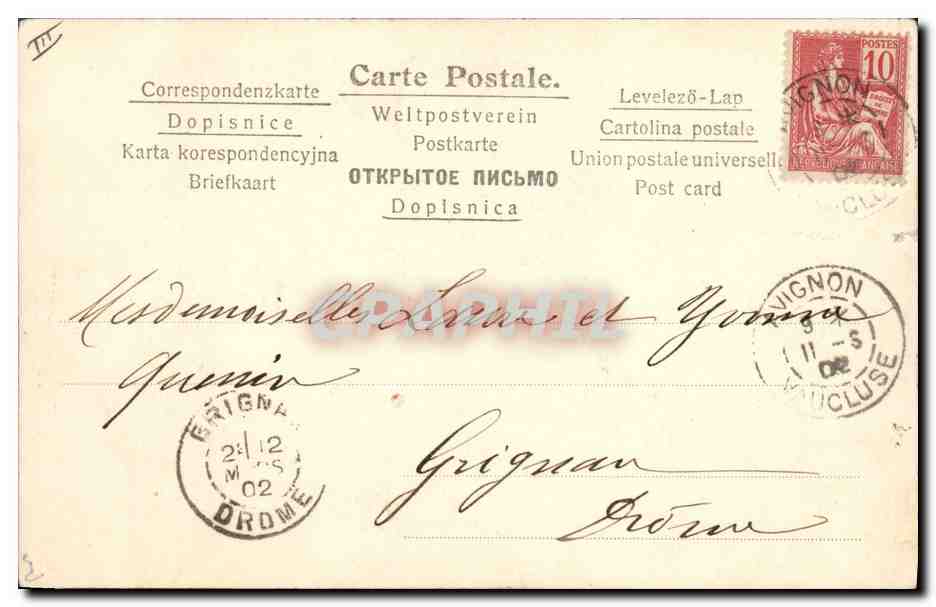 III
Carte Postale.
Correspondenzkarte
Dopisnice
Karta korespondencyjna
Briefkaart
Weltpostverein
Postkarte
ОТКРЫТОЕ ПИСЬМО
Dopisnica
Levelező-Lap
Cartolina postale
Union postale universelle
Post card
POSTES
10
RÉPUBLIQUE FRANÇAISE
AVIGNON
CPAPHIL
Mesdemoiselles et Yvonne
Quenin
Grignan
Drôme
AVIGNON
9
11 - S
02
VAUCLUSE
GRIGNAN
12
MARS
02
DROME